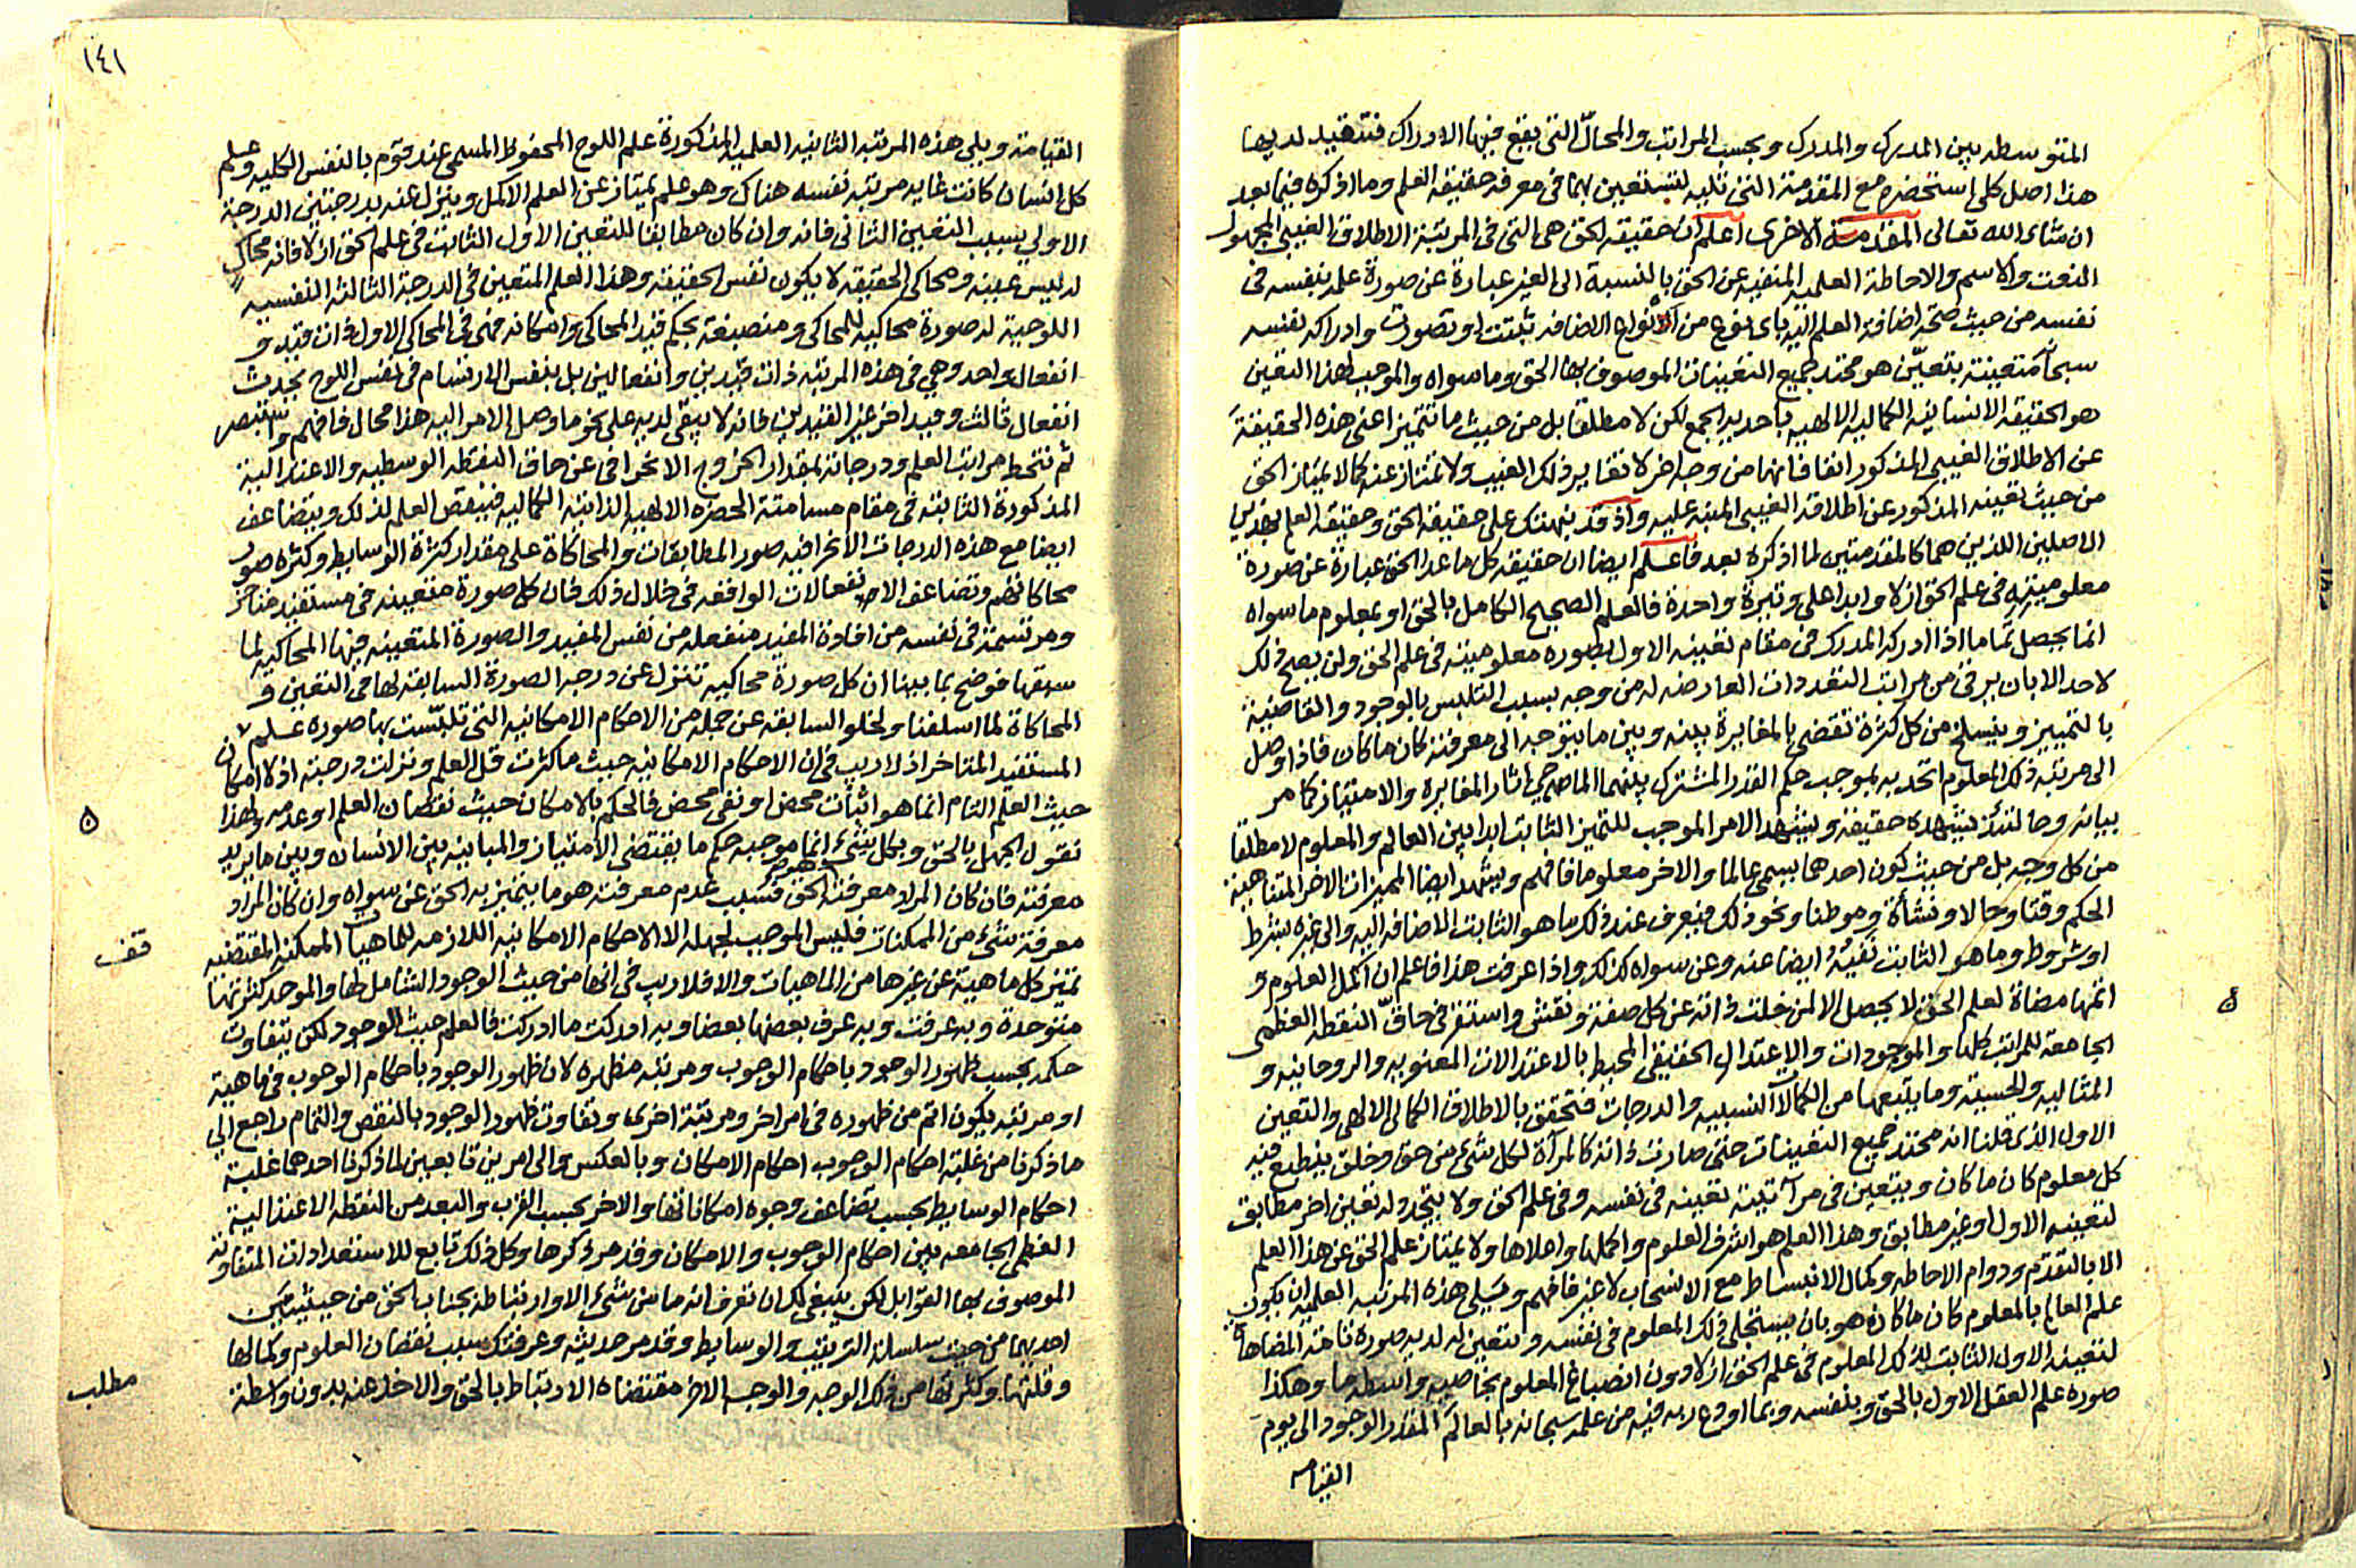 المتوسطه بين المدرك والمدرك وبحسب المراتب والمحالّ التى يقع فيها الادراك فتتقيد لديها
هذا اصل كلى استحضره مع المقدمة التى تليه لتستعين بهما فى معرفه حقيقه العلم وما اذكره فيما بعد
ان شاء الله تعالى المقدمة الاخرى اعلم ان حقيقه الحق هى التى فى المرتبة الاطلاق الغيبى المجهول
النعت والاسم والاحاطة العلميه المنفيه عن الحق بالنسبة الى الغير عبارة عن صورة علمه بنفسه فى
نفسه من حيث صحة اضافة العلم اليه باى نوع من انواع الاضافه ثبتت او تصورت وادراكه نفسه
سبحانه متعينة بتعيّن هو محتد جميع التعينات الموصوف بها الحق وما سواه والموجب لهذا التعين
هو الحقيقه الانسانيه الكماليه الالهيه باحديه الجمع لكن لا مطلقا بل من حيث ما تتميز اعنى هذه الحقيقة
عن الاطلاق الغيبى المذكور انفا فانها من وجه اخر لا تغاير ذلك الغيب ولا تمتاز عنه كما لا يمتاز الحق
من حيث تعينه المذكور عن اطلاقه الغيبى المنبه عليه واذ قد نبهتك على حقيقه الحق وحقيقه العلم بهذين
الاصلين اللذين هما كالمقدمتين لما اذكره بعد فاعلم ايضا ان حقيقه كل ما عدا الحق عبارة عن صورة
معلوميته فى علم الحق ازلا وابدا على وتيرة واحدة فالعلم الصحيح الكامل بالحق او بمعلوم ما سواه
انما يحصل تماما اذا ادركه المدرك فى مقام تعينه الاول بصوره معلوميته فى علم الحق ولن يصح ذلك
لاحد الا بان يرقى من مراتب التعددات العارضه له من وجه بسبب التلبس بالوجود والقاضية
بالتمييز وينسلخ من كل كثرة تقضى بالمغايرة بينه وبين ما يتوجه الى معرفته كان ما كان فاذا وصل
الى مرتبه ذلك المعلوم اتحد به بموجب حكم القدر المشترك بينهما الماحي اثار المغايره والامتياز كما مر
بيانه وحالتئذ يشهده حقيقة ويشهد الامر الموجب للتميز الثابت ابدا بين العالم والمعلوم لا مطلقا
من كل وجه بل من حيث كون احدهما يسمى عالما والاخر معلوما فافهم ويشهد ايضا المميزات الاخر المتناهية
الحكم وقتا وحالا ونشأة وموطنا ونحو ذلك فيعرف عند ذلك ما هو الثابت الاضافه اليه والى غيره بشرط
او شروط وما هو الثابت نفيُهُ ايضا عنه وعن سواه كذلك واذا عرفت هذا فاعلم ان اكمل العلوم و
اتمها مضاهاة لعلم الحق لا يحصل الا لمن خلت ذاته عن كل صفة ونقش واستقر فى حاقّ النقطه العظمى
الجامعة للمراتب كلها والموجودات والاعتدال الحقيقى المحيط بالاعتدالات المعنويه والروحانيه و
المثاليه والحسية وما يتبعها من الكمالات النسبيه والدرجات فتحقق بالاطلاق الكمالى الالهى والتعين
الاول الذى قلنا انه محتد جميع التعينات حتى صارت ذاته كالمرآة لكل شىء من حق وخلق ينطبع فيه
كل معلوم كان ما كان ويتعين فى مرآتيته تعينه فى نفسه وفى علم الحق ولا يتجدد له تعين اخر مطابق
لتعينه الاول او غير مطابق وهذا العلم هو اشرف العلوم واكملها واعلاها ولا يمتاز علم الحق عن هذا العلم
الا بالتقدّم ودوام الاحاطه وكمال الانبساط مع الانسحاب لا غير فافهم ويَلى هذه المرتبه العلميه ان يكون
علم العالم بالمعلوم كان ما كان هو بان يستجلى ذلك المعلوم فى نفسه ويتعين له لديه صورة تامة المضاهاة
لتعينه الاول الثابت لذلك المعلوم فى علم الحق ازلا دون انصباغ المعلوم بخاصيه واسطه ما وهكذا
صوره علم العقل الاول بالحق وبنفسه وبما اودع لديه فيه من علمه سبحانه بالعالم المقدر الوجود الى يوم
القيامه
١٤١
القيامة ويلى هذه المرتبه الثانيه العلميه المذكورة علم اللوح المحفوظ المسمى عند قوم بالنفس الكليه وعلم
كل انسان كانت غايه مرتبه نفسه هناك وهو علم يمتاز عن العلم الاكمل وينزل عنه بدرجتين الدرجة
الاولى بسبب التعين الثانى فانه وان كان مطابقا للتعين الاول الثابت فى علم الحق ازلا فانه محاكٍ
له ليس عينه ومحاكى الحقيقه لا يكون نفس الحقيقه وهذا العلم المتعين فى الدرجة الثالثه النفسيه
اللوحية له صورة محاكيه للمحاكى ومنصبغة بحكم قيد المحاكى وامكانه فهى فى المحاكى الاول ذات قيد و
انفعال واحد وهي فى هذه المرتبه ذات قيدين وانفعالين بل بنفس الارتسام فى نفس اللوح يحدث
انفعال ثالث وقيد اخر غير القيدين فانه لا يبقى لديه على نحو ما وصل الامر اليه هذا محال فافهم واستبصر
ثم تنحط مراتب العلم ودرجاته بمقدار الخروج الانحرافى عن حاق النقطه الوسطيه والاعتداليه
المذكورة الثابته فى مقام مسامتة الحضره الالهيه الذاتيه الكماليه فينقص العلم لذلك ويتضاعف
ايضا مع هذه الدرجات الانحرافيه صور المطابقات والمحاكاة على مقدار كثرة الوسايط وكثره صور
محاكاتهم وتضاعف الانفعالات الواقعه فى خلال ذلك فان كل صورة متعينه فى مستفيد متاخر
ومرتسمة فى نفسه من افادة المفيد منفعله من نفس المفيد والصورة المتعينه فيها المحاكيه لما
سبقها فوضح بما بينا ان كل صورة محاكيه تنزل عن درجه الصورة السابقه لها فى التعين و
المحاكاة لما اسلفنا ولخلو السابقه عن جمله من الاحكام الامكانيه التى تلبّست بها صوره علم
المستفيد المتاخر اذ لا ريب فى ان الاحكام الامكانيه حيث ما كثرت قل العلم ونزلت درجته اذ لا امكان
حيث العلم التام انما هو اثبات محض او نفى محض فالحكم بالامكان حيث نقصان العلم او عدمه ولهذا
نقول الجهل بالحق وبكل شىء انما موجبه حكم ما يقتضى الامتياز والمباينه بين الانسان وبين ما يريد
معرفته فان كان المراد معرفة الحق فسبب عدم معرفته هو ما يتميز به الحق عن سواه وان كان المراد
معرفة شىء من الممكنات فليس الموجب لجهله الا الاحكام الامكانيه اللازمه للماهيات الممكنه المقتضيه
تميز كل ماهية عن غيرها من الماهيات والا فلا ريب فى انها من حيث الوجود الشامل لها والموحد كثرتها
متوحدة وبه عرفت وبه عرف بعضها بعضا وبه ادركت ما ادركت فالعلم حيث الوجود لكن يتفاوت
حكمه بحسب ظهور الوجود باحكام الوجوب ومرتبه مظهره لان ظهور الوجود باحكام الوجوب فى ماهية
او مرتبه يكون اتم من ظهوره فى امر اخر ومرتبة اخرى وتفاوت ظهور الوجود بالنقص والتمام راجع الى
ما ذكرنا من غلبة احكام الوجوب احكام الامكان وبالعكس والى امرين تابعين لما ذكرنا احدهما غلبة
احكام الوسايط بحسب تضاعف وجوه امكاناتها والاخر بحسب القرب والبعد من النقطه الاعتدالية
العظمى الجامعه بين احكام الوجوب والامكان وقد مر ذكرها وكل ذلك تابع للاستعدادات المتفاوتة
الموصوف بها القوابل لكن ينبغى لك ان تعرف انه ما من شىء الا وارتباطه بجناب الحق من حيثيتين
احديهما من حيث سلسلة الترتيب والوسايط وقد مر حديثه وعرفتك سبب نقصان العلوم وكمالها
وقلتها وكثرتها من ذلك الوجه والوجه الاخر مقتضاه الارتباط بالحق والاخذ عنه بدون واسطة
قف
مطلب